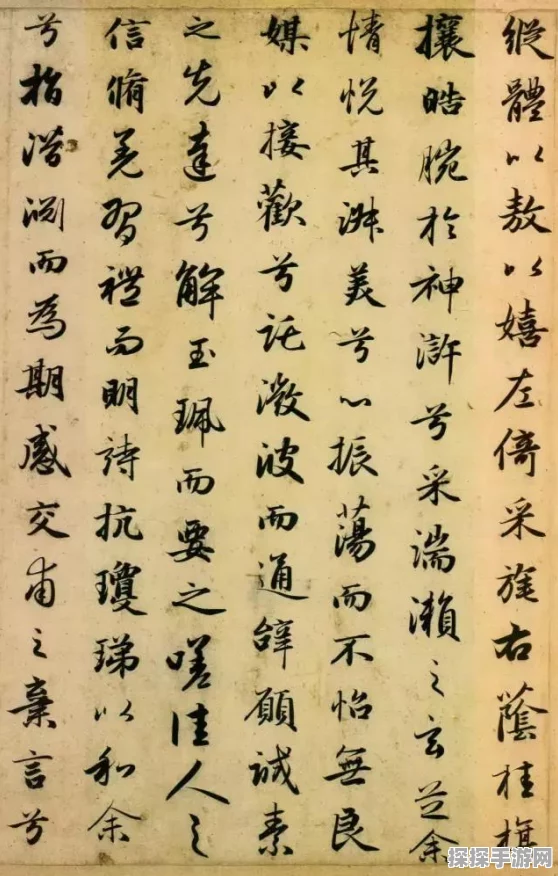 縱體以敖以嬉左倚采旄右蔭桂旗
攘皓腕於神滸兮采湍瀨之玄芝余
情悅其淑美兮心振蕩而不怡無良
媒以接歡兮託微波而通辭願誠素
之先達兮解玉珮而要之嗟佳人之
信脩羌習禮而明詩抗瓊珶以和余
兮指潛淵而為期感交甫之棄言兮
探探手游网